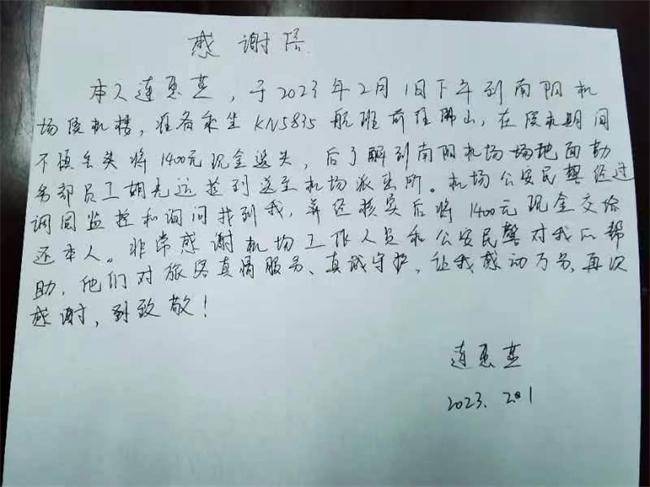 感谢语
本人连惠燕，于2023年2月1日下午到南阳机
场候机楼，准备乘坐KN5835航班前往佛山，在候机期间
不慎丢失将1400元现金遗失，后了解到南阳机场场地面勤
务部员工姚先运捡到送至机场派出所。机场公安民警经过
调回监控和询问找到我，并经核实后将1400元现金交给
还本人。非常感谢机场工作人员和公安民警对我的帮
助，他们对旅客真情服务、真诚守护，让我感动万分，再次
感谢，到致敬！
连惠燕
2023.2.1